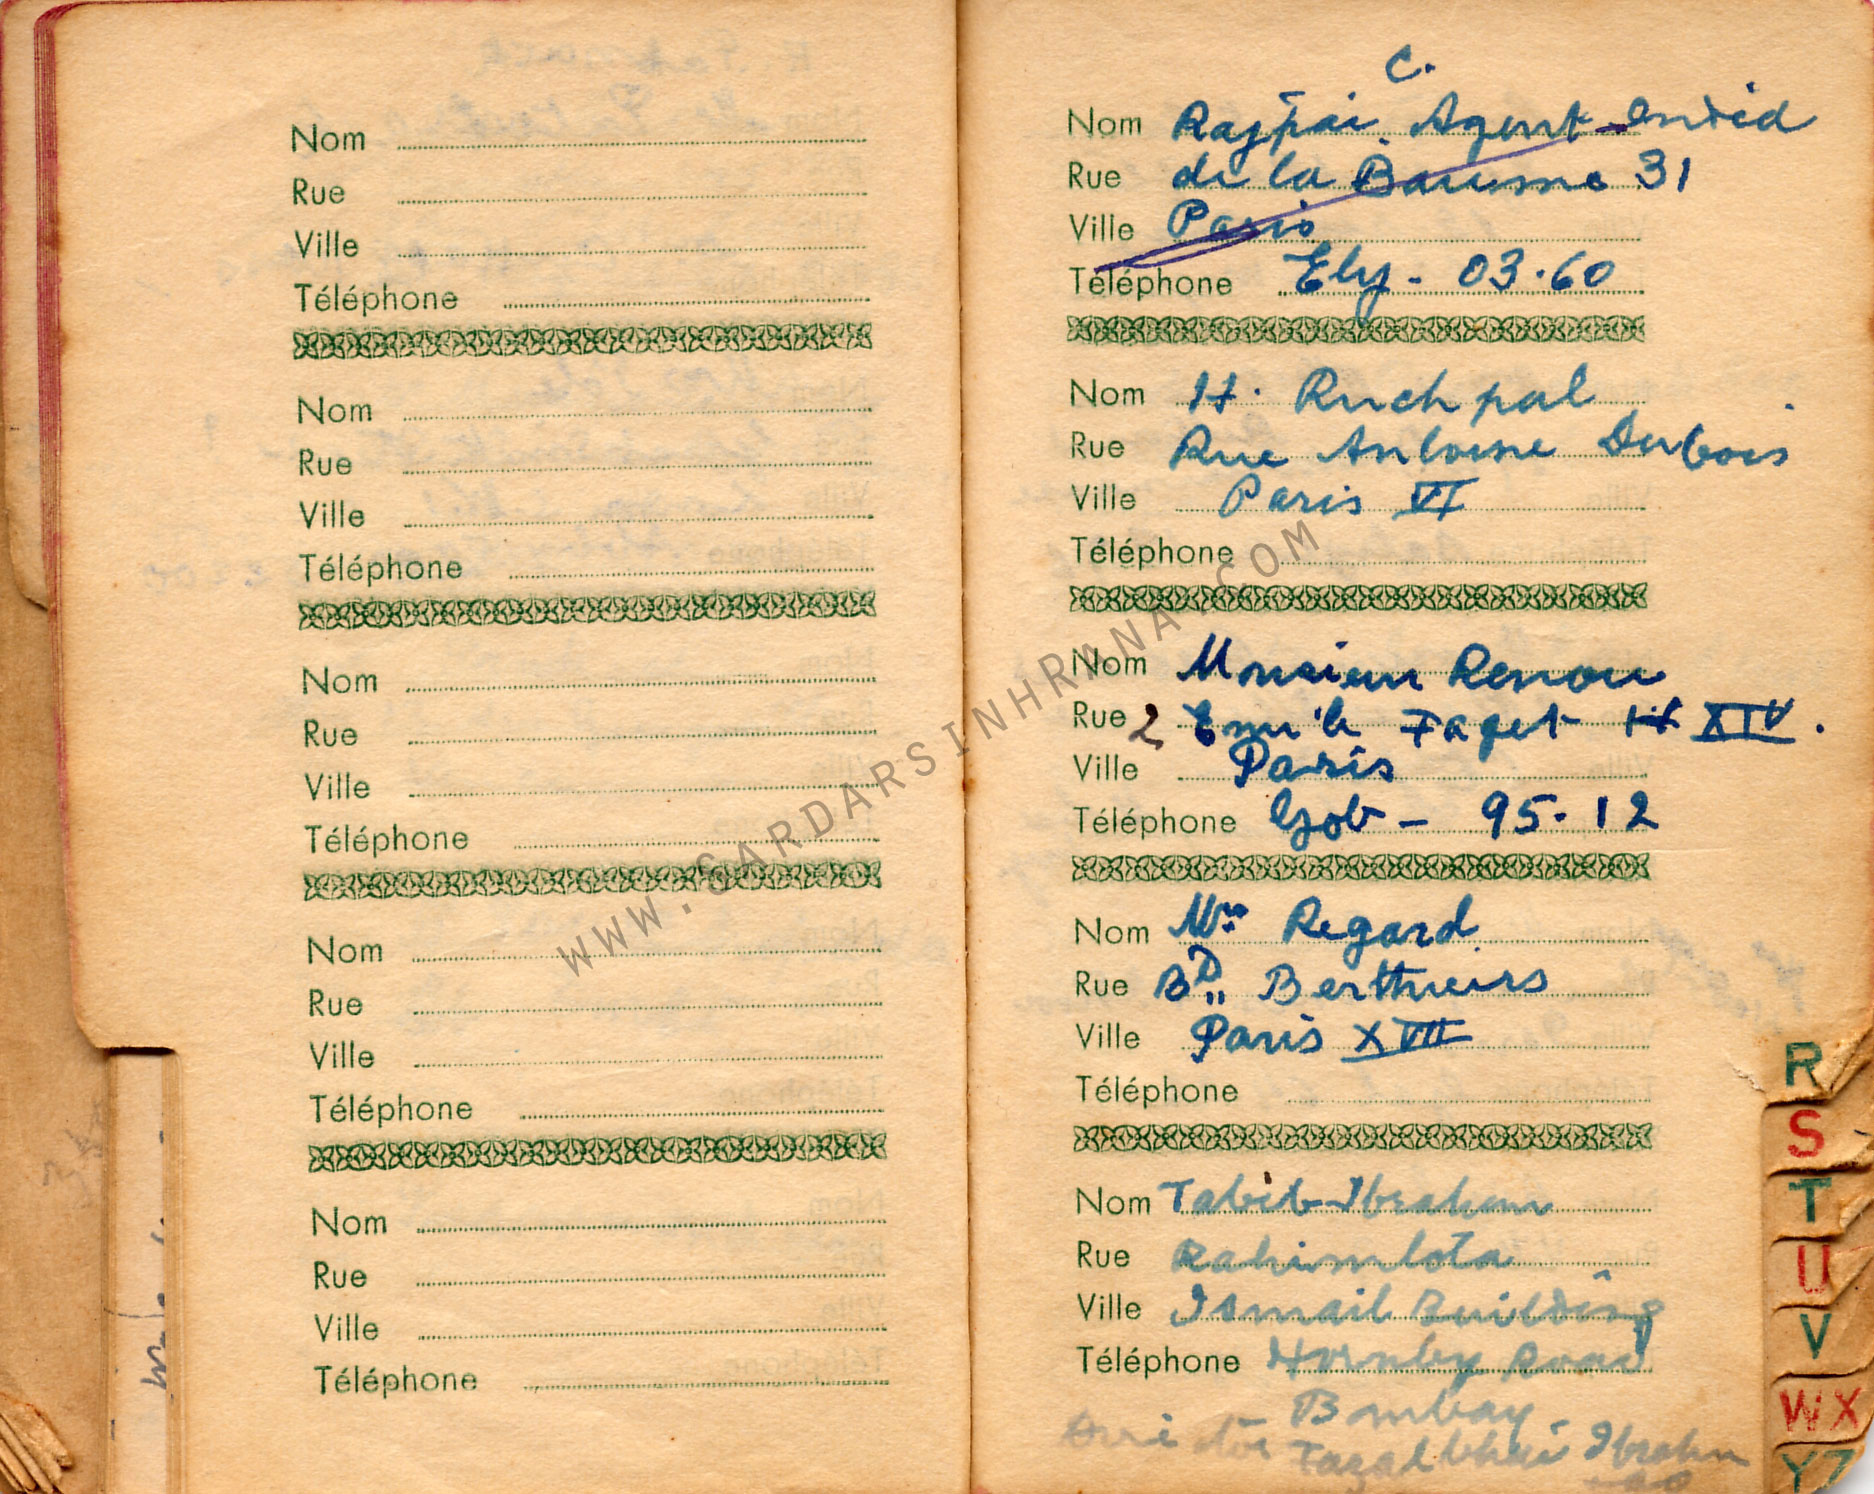 Nom
Rue
Ville
Téléphone
Nom
Rue
Ville
Téléphone
Nom
Rue
Ville
Téléphone
Nom
Rue
Ville
Téléphone
Nom
Rue
Ville
Téléphone
C.
Nom Rajpai Agent
Rue de la Baume 31
Ville Paris
Téléphone Ely - 03.60
Nom H. Ruchpal
Rue Rue Antoine Dubois
Ville Paris VI
Téléphone
Nom Monsieur Renou
Rue 2 Emile Faget XIV.
Ville Paris
Téléphone Gob - 95.12
Nom Regard
Rue BD Berthieirs
Ville Paris XVII
Téléphone
Nom Tabib Ibrahim
Rue Rahimtota
Ville Ismail Building
Téléphone Hornby Road
Bombay
Fazalbhai Ibrahim
R
S
T
U
V
WX
YZ
WWW.SARDARSINHRANA.COM